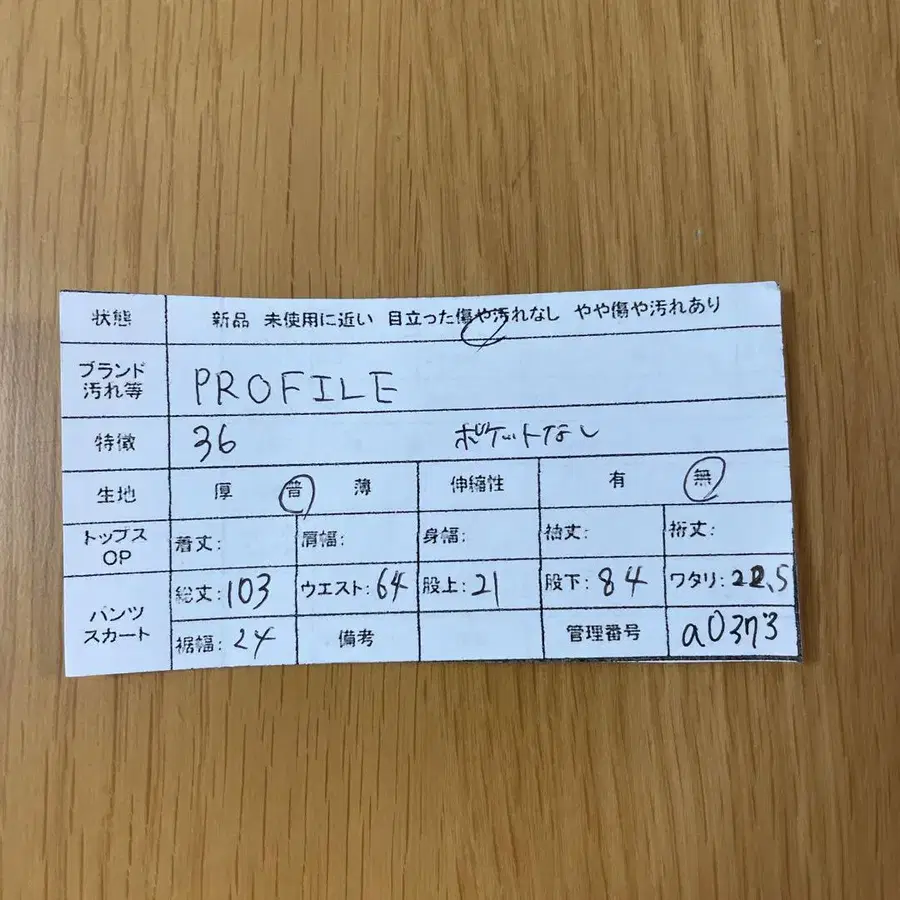 状態 新品 未使用に近い 目立った傷や汚れなし やや傷や汚れあり
ブランド
汚れ等 PROFILE
特徴 36 ポケットなし
生地 厚 普 薄 伸縮性 有 無
トップス
OP 着丈: 肩幅: 身幅: 袖丈: 裄丈:
パンツ
スカート 総丈:103 ウエスト:64 股上:21 股下:84 ワタリ:22.5
裾幅:24 備考 管理番号 a0373